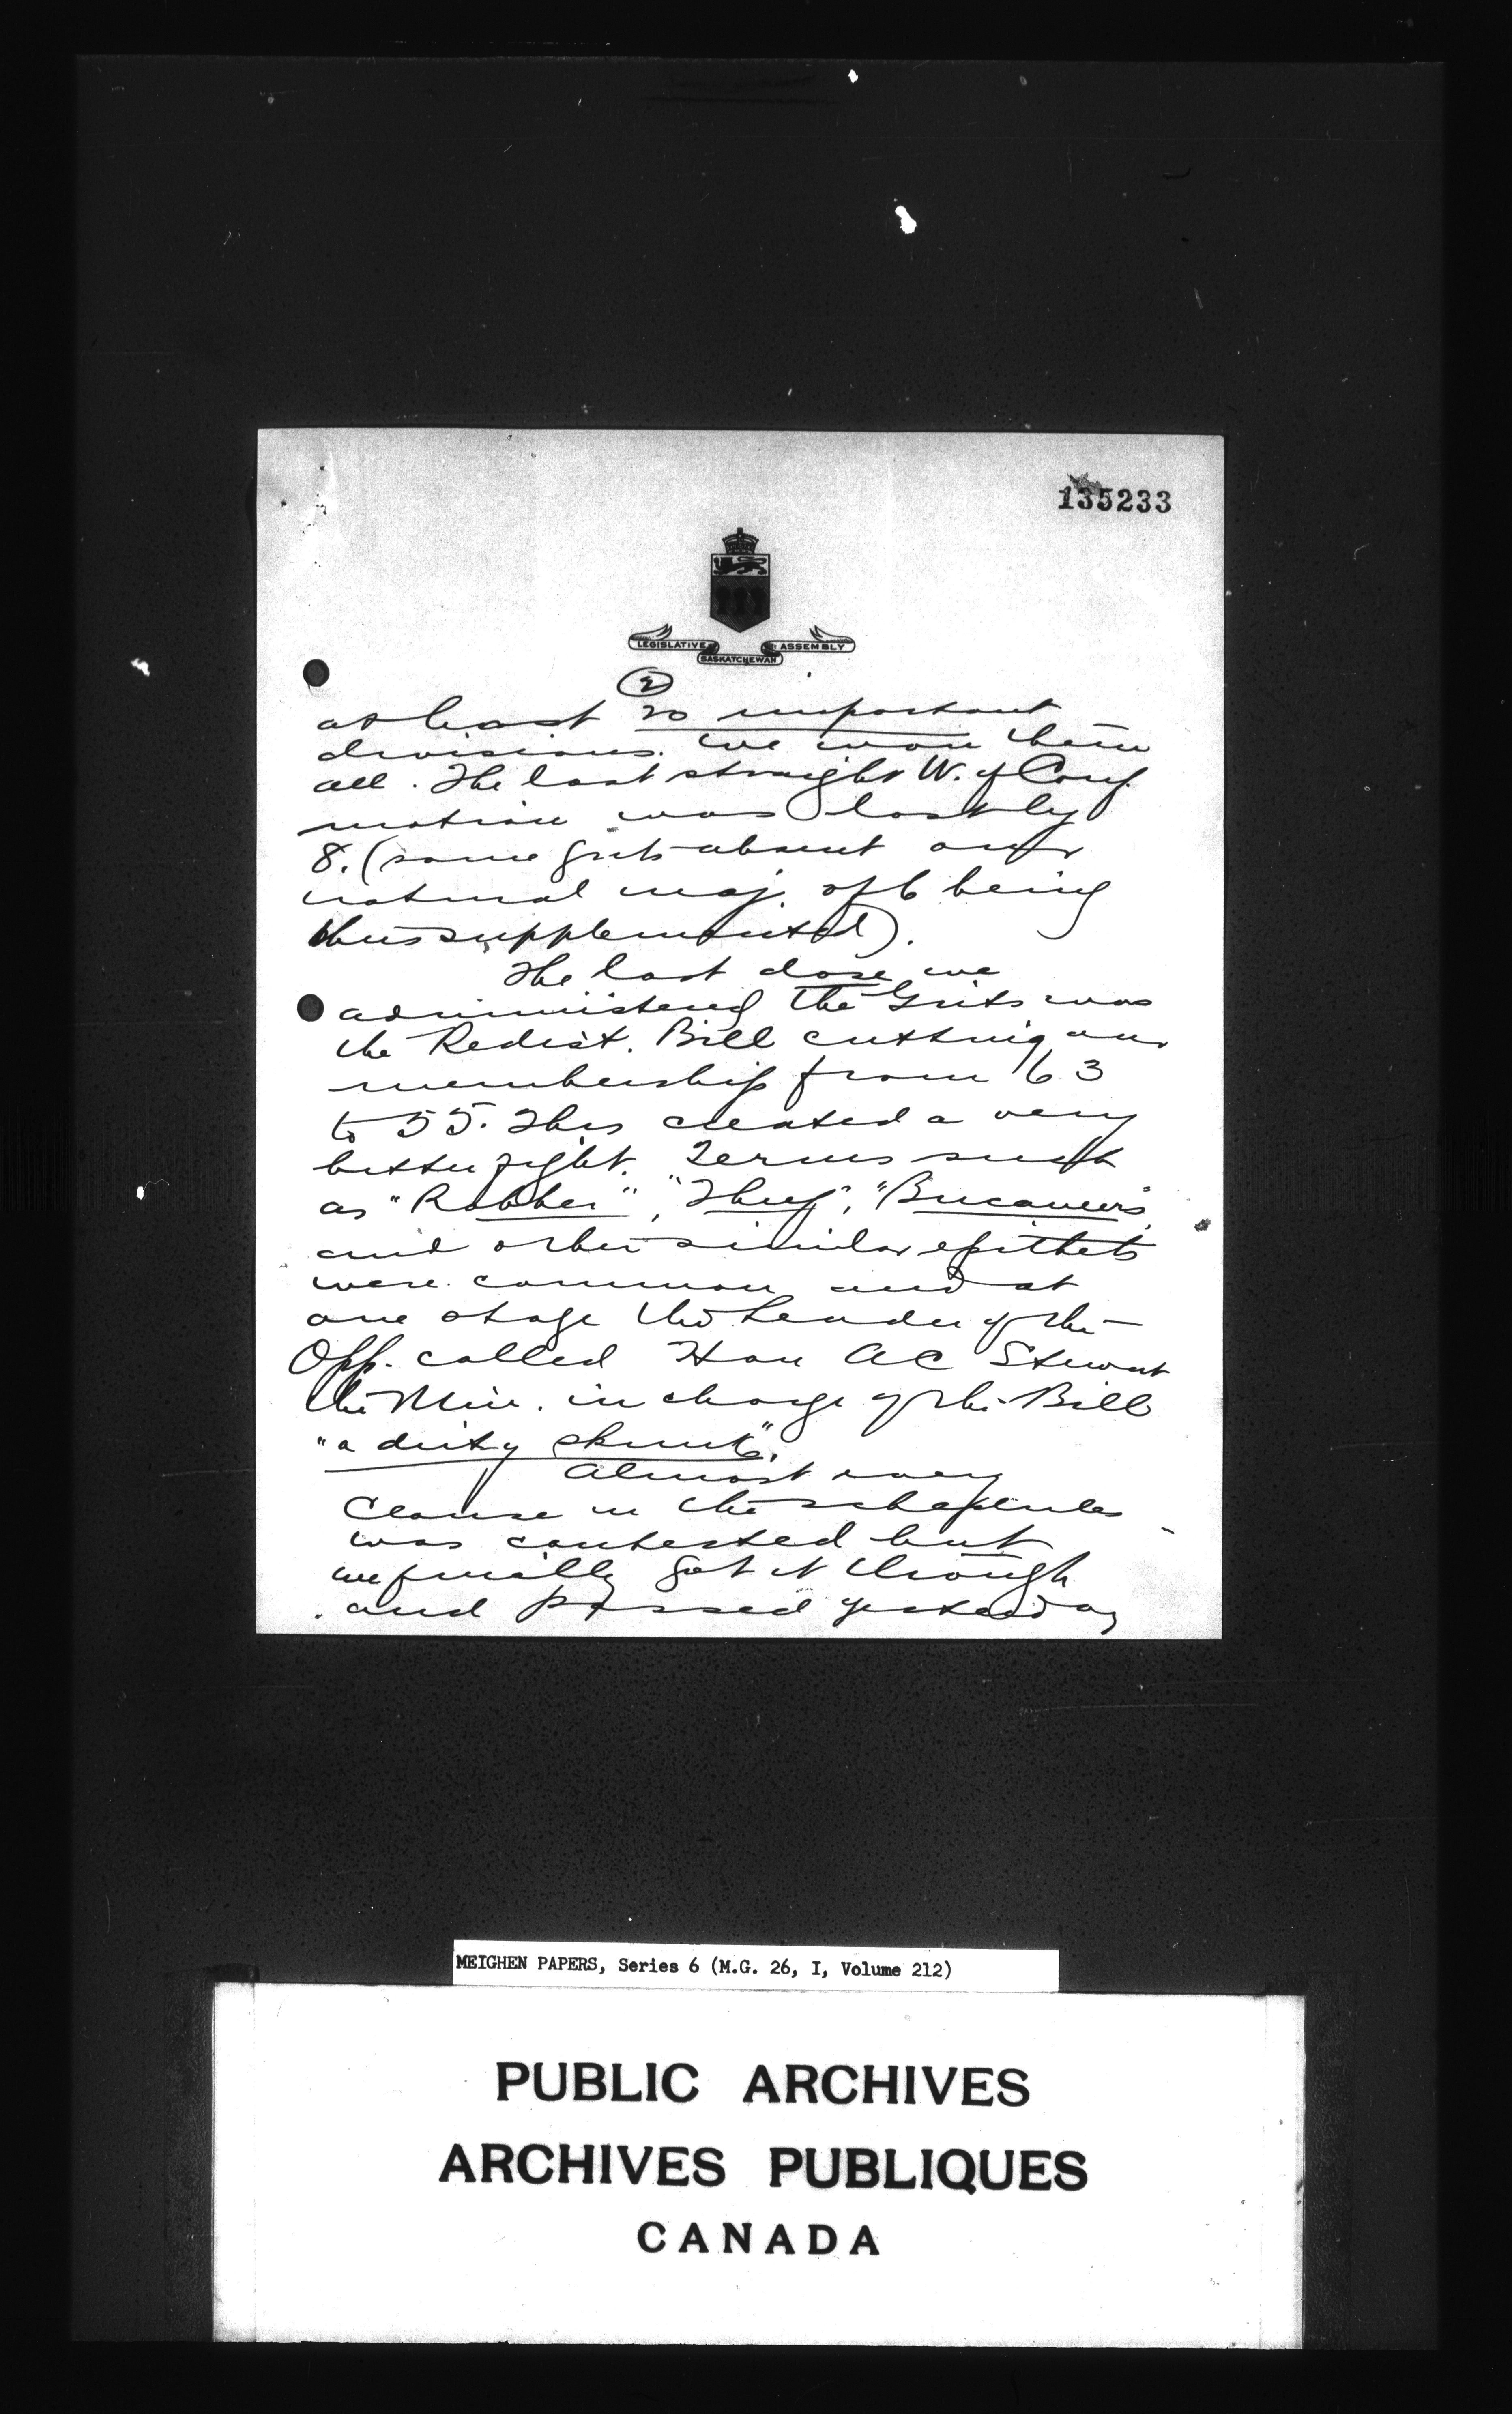 135233
LEGISLATIVE ASSEMBLY
SASKATCHEWAN
2
at least 20 important
divisions. We won them
all. The last straight W. of Conf.
motion was lost by
8. (some Grits absent our
natural maj. of 6 being
thus supplemented).
The last dose we
administered the Grits was
the Redist. Bill cutting our
membership from 63
to 55. This created a very
bitter fight. Terms such
as "Robber", "Thug", "Bucaneers
and other similar epithets
were common and at
one stage the Leader of the
Opp. called Hon AC Stewart
the Min. in charge of the Bill
"a dirty skunk".
Almost every
Clause in the schedules
was contested but
we finally got it through
and passed yesterday
MEIGHEN PAPERS, Series 6 (M.G. 26, I, Volume 212)
PUBLIC ARCHIVES
ARCHIVES PUBLIQUES
CANADA